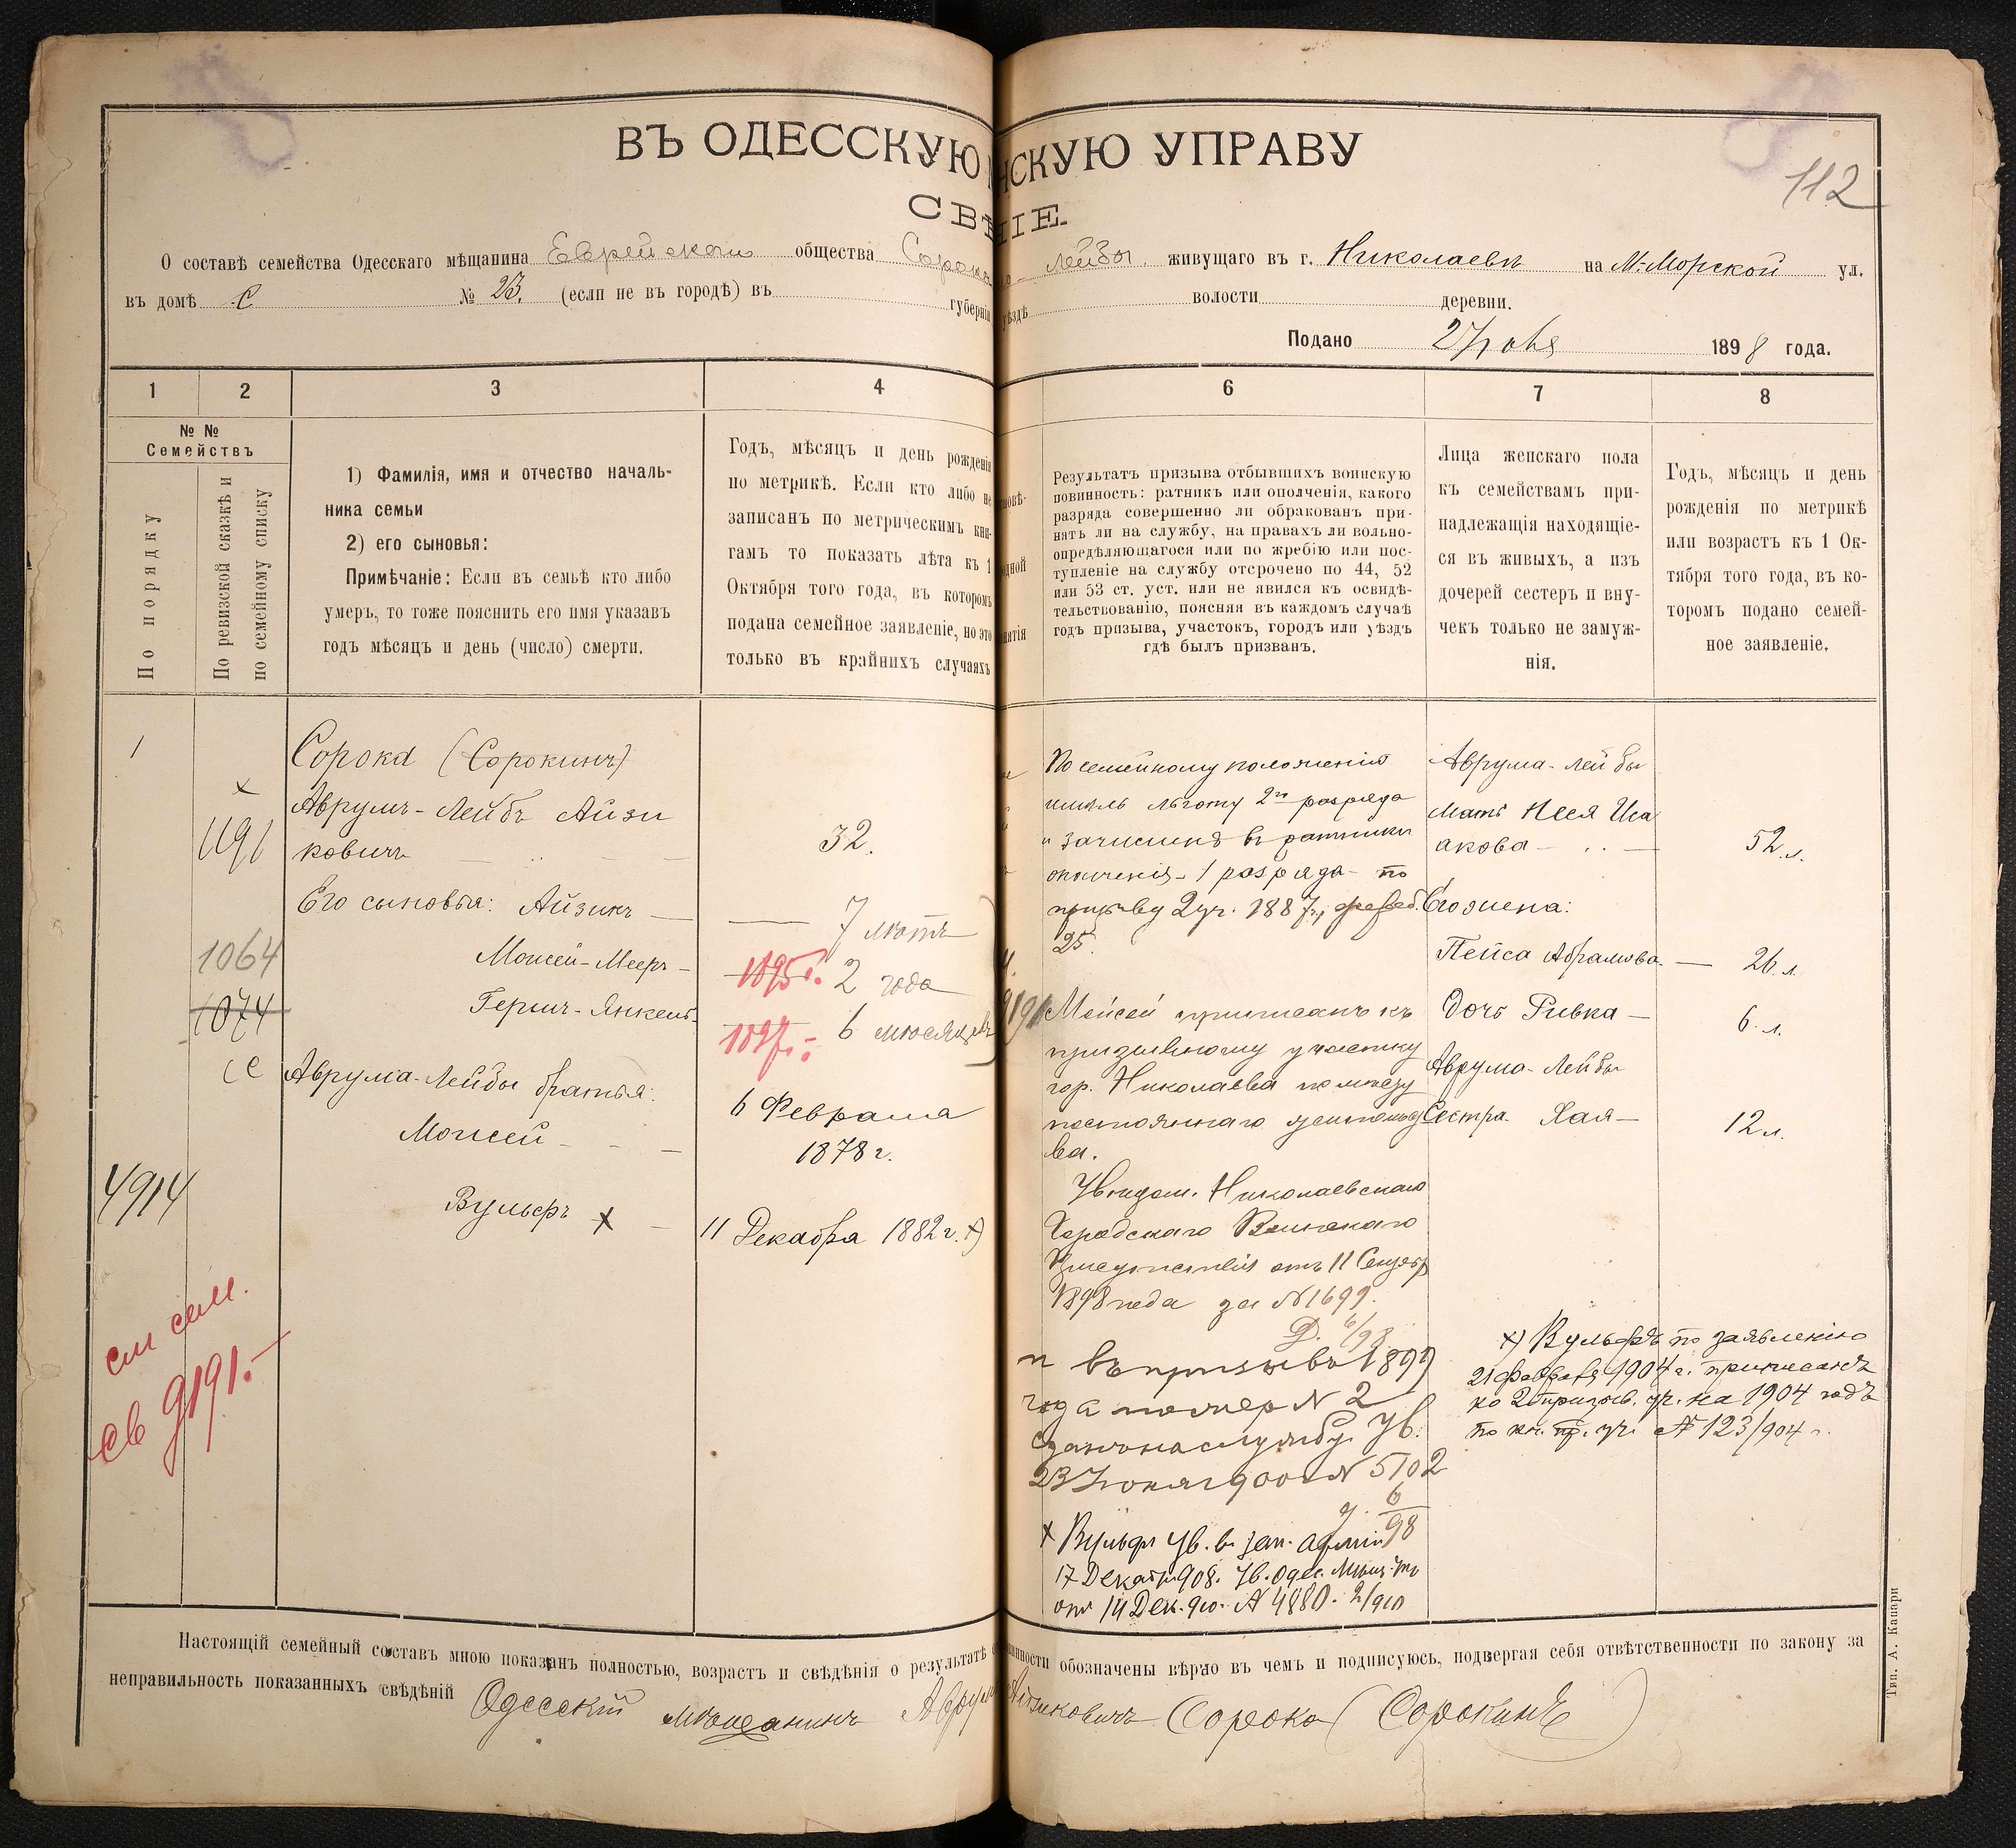 ВЪ ОДЕССКУЮ НСКУЮ УПРАВУ
СВѢ НІЕ.
112
О составѣ семейства Одесскаго мѣщанина Еврейскаго общества Сорока Лейбы живущаго въ г. Николаевѣ на М. Морской ул.
въ домѣ С № 23. (если не въ городѣ) въ губерніи уѣздѣ волости деревни.
Подано 27 1898 года.
1 2 3 4 6 7 8
№ №
Семействъ
По порядку
По ревизской сказкѣ и
по семейному списку
1) Фамилія, имя и отчество началь-
ника семьи
2) его сыновья:
Примѣчаніе: Если въ семьѣ кто либо
умеръ, то тоже пояснить его имя указавъ
годъ мѣсяцъ и день (число) смерти.
Годъ, мѣсяцъ и день рожденія
по метрикѣ. Если кто либо не
записанъ по метрическимъ кни-
гамъ то показать лѣта къ 1
Октября того года, въ которомъ
подана семейное заявленіе, но это
только въ крайнихъ случаяхъ
Результатъ призыва отбывшихъ воинскую
повинность: ратникъ или ополченія, какого
разряда совершенно ли обракованъ при-
нятъ ли на службу, на правахъ ли вольно-
опредѣляющагося или по жребію или пос-
тупленіе на службу отсрочено по 44, 52
или 53 ст. уст. или не явился къ освидѣ-
тельствованію, поясняя въ каждомъ случаѣ
годъ призыва, участокъ, городъ или уѣздъ
гдѣ былъ призванъ.
Лица женскаго пола
къ семействамъ при-
надлежащія находящіе-
ся въ живыхъ, а изъ
дочерей сестеръ и вну-
чекъ только не замуж-
нія.
Годъ, мѣсяцъ и день
рожденія по метрикѣ
или возрастъ къ 1 Ок-
тября того года, въ ко-
торомъ подано семей-
ное заявленіе.
1
х
1191
1064
1074
4914
см сем.
св 9191.
Сорока (Сорокинъ)
Аврумъ-Лейбъ Айзи
ковичъ
32.
Его сыновья: Айзикъ — 7 лѣтъ
Моисей-Мееръ — 1895 г. 2 года
Гершъ-Янкель — 1897 г. 6 мѣсяцевъ
Аврума-Лейбы братья:
Моисей —
6 Февраля
1878 г.
Вульфъ х — 11 Декабря 1882 г. х)
По семейному положенію
имѣлъ льготу 2го разряда
и зачисленъ въ ратники
ополченія 1 разряда по
призыву 2 уч. 1887 г.
25.
9191 Мойсей приписанъ къ
призывному участку
гор. Николаева по мѣсту
постояннаго жительст
ва.
Увѣдом. Николаевскаго
Городского Воинскаго
Присутствія отъ 11 Сентяб
1898 года за № 1699.
въ призывъ 1899
года № 2
на службу. Ув.
23 Іюня 1900 г. № 5102
6/98
х Вульфъ ув. в зап. арміи
17 Декабр. 908. Ув. Одес.
отъ 14 Дек. 910. № 4880. 2/910
Аврума-Лейбы
Мать Неся Иса
акова — 52 л.
Его жена:
Пейса Абрамова — 26 л.
Дочь Ривка — 6 л.
Аврума-Лейбы
Сестра Хая — 12 л.
х) Вульфъ по заявленію
21 Февраля 1904 г. приписанъ
ко 2 призыв. уч. на 1904 годъ
по кн. пр. уч. № 123/904 г.
Настоящій семейный составъ мною показанъ полностью, возрастъ и свѣдѣнія о результатѣ о винности обозначены вѣрно въ чемъ и подписуюсь, подвергая себя отвѣтственности по закону за
неправильность показанныхъ свѣдѣній Одесскій мѣщанинъ Аврумъ Айзиковичъ Сорока (Сорокинъ)
Тип. А. Капари